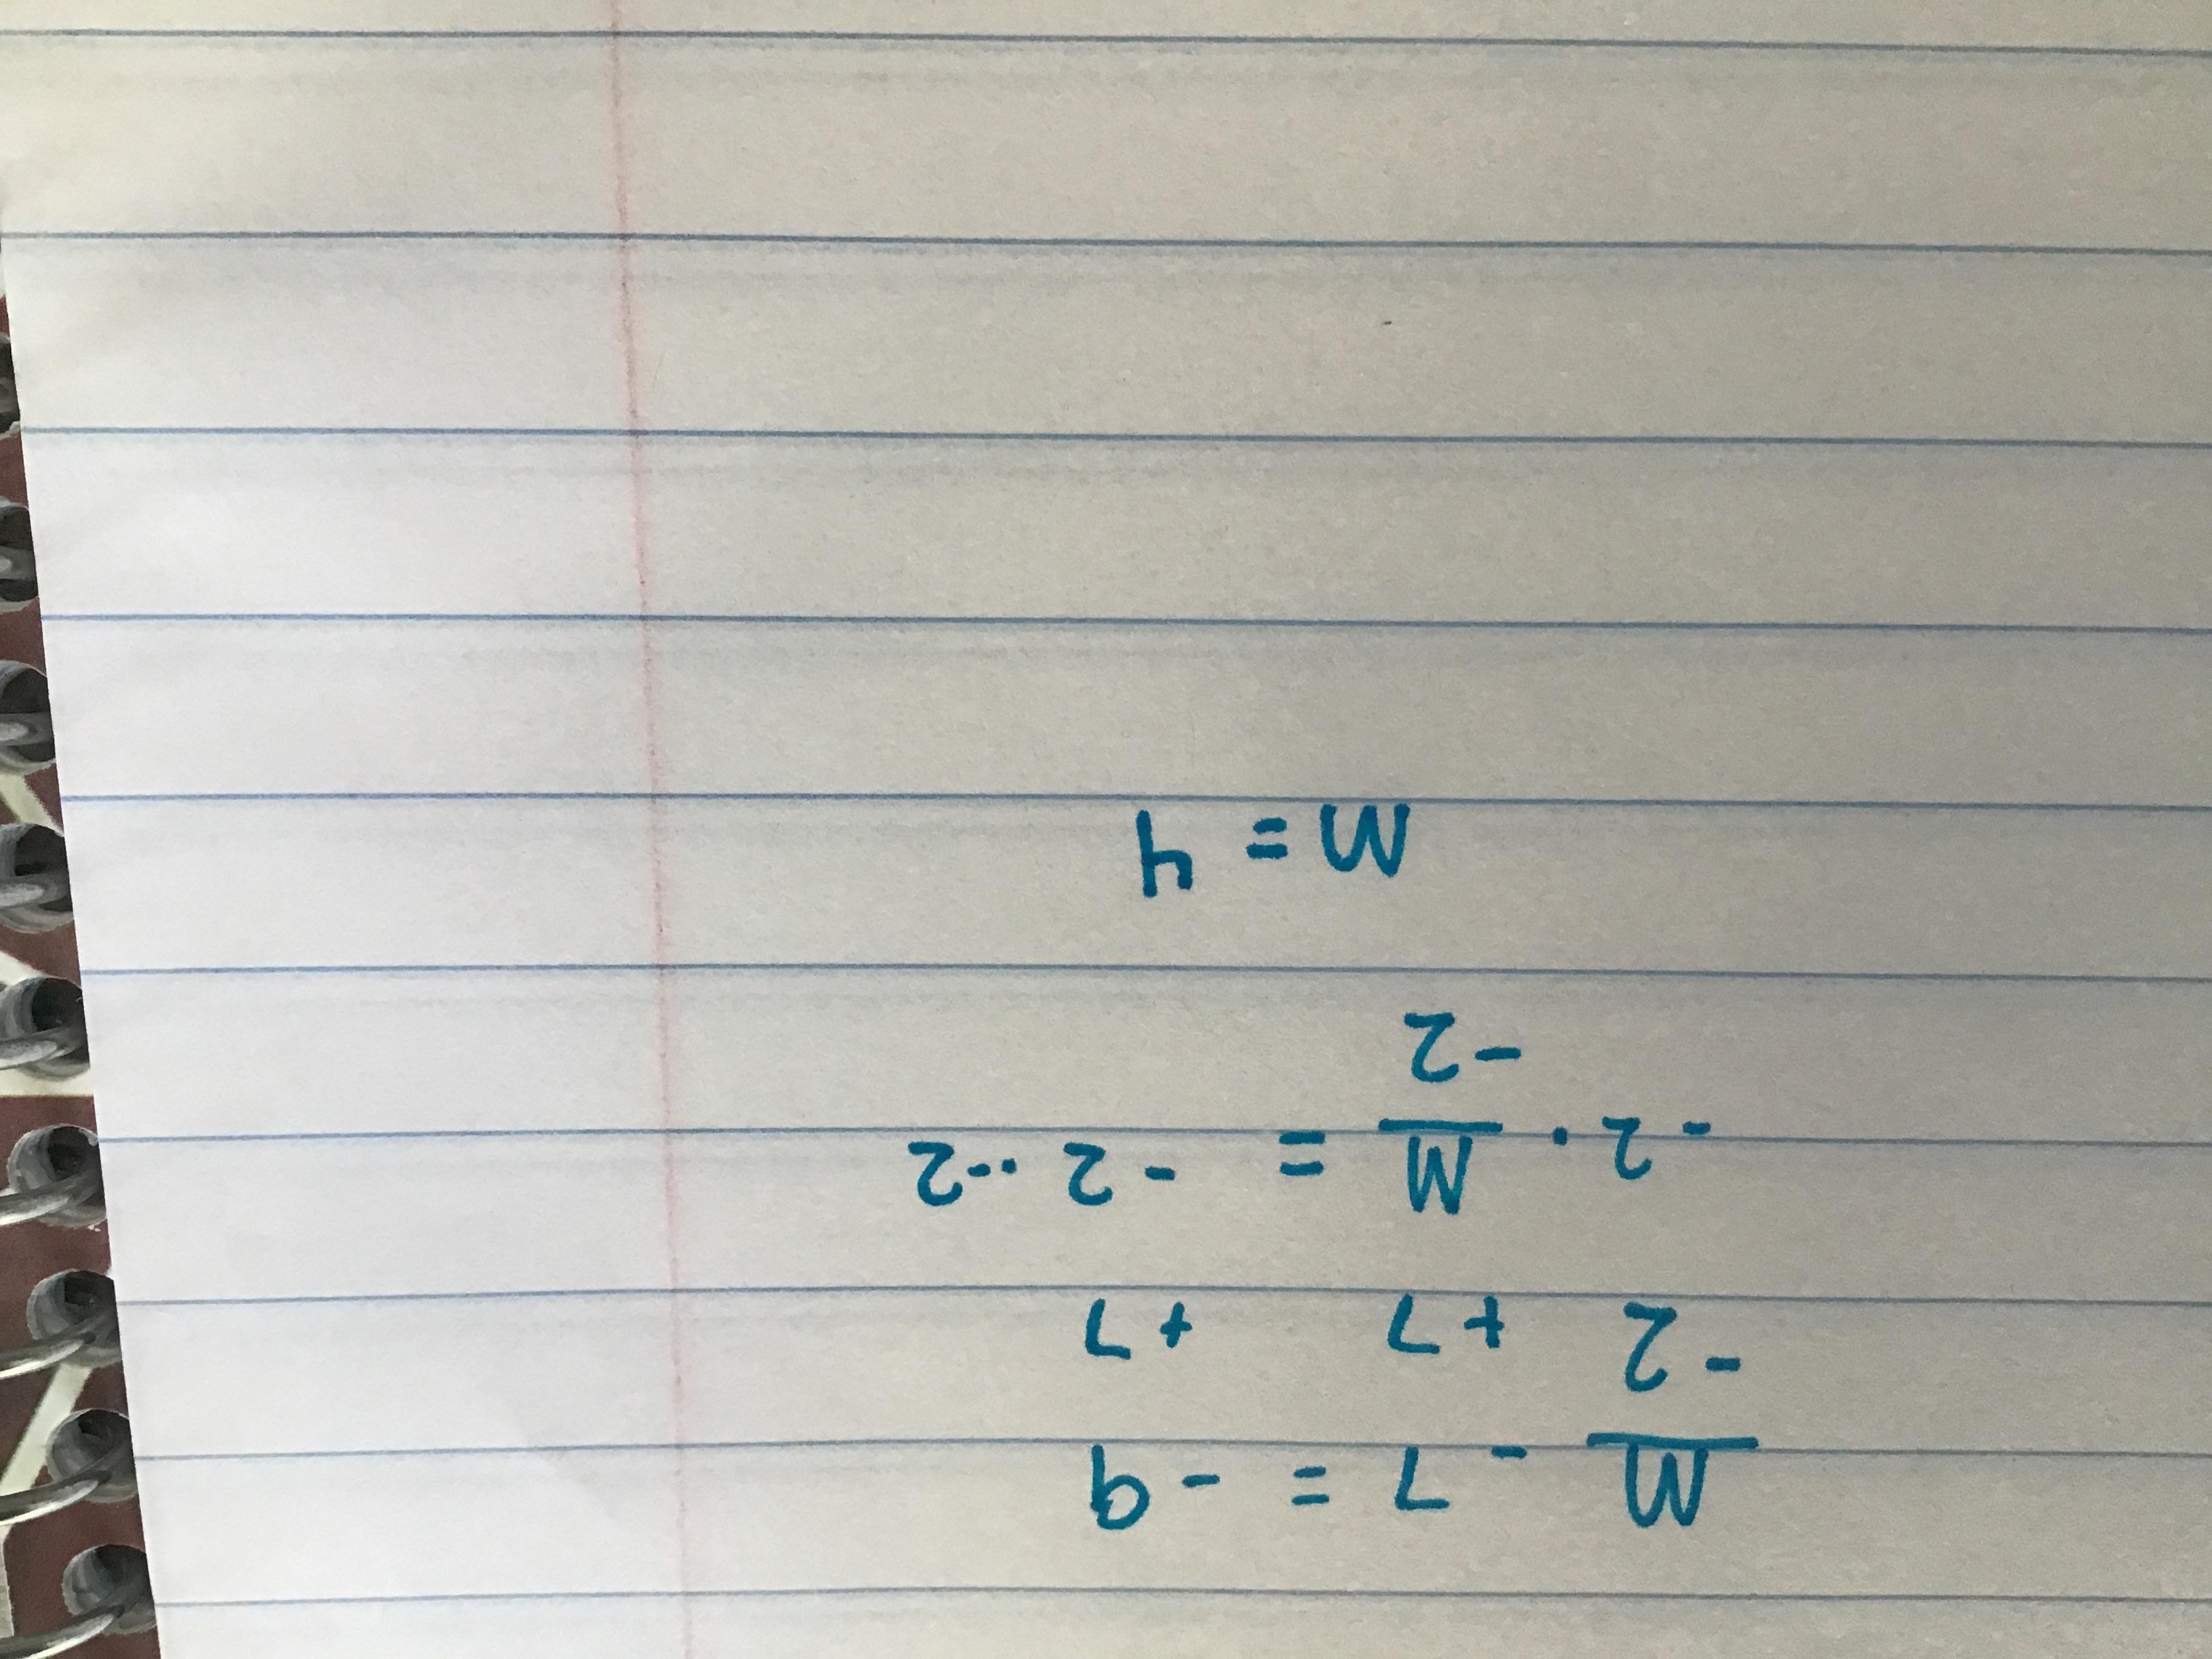 M/-2 - 7 = -9
+7 +7
-2 · M/-2 = -2 · -2
M = 4